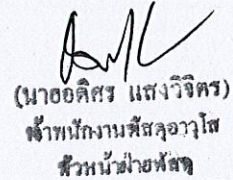 (นายอดิศร แสงวิจิตร)
เจ้าพนักงานพัสดุอาวุโส
หัวหน้าฝ่ายพัสดุ